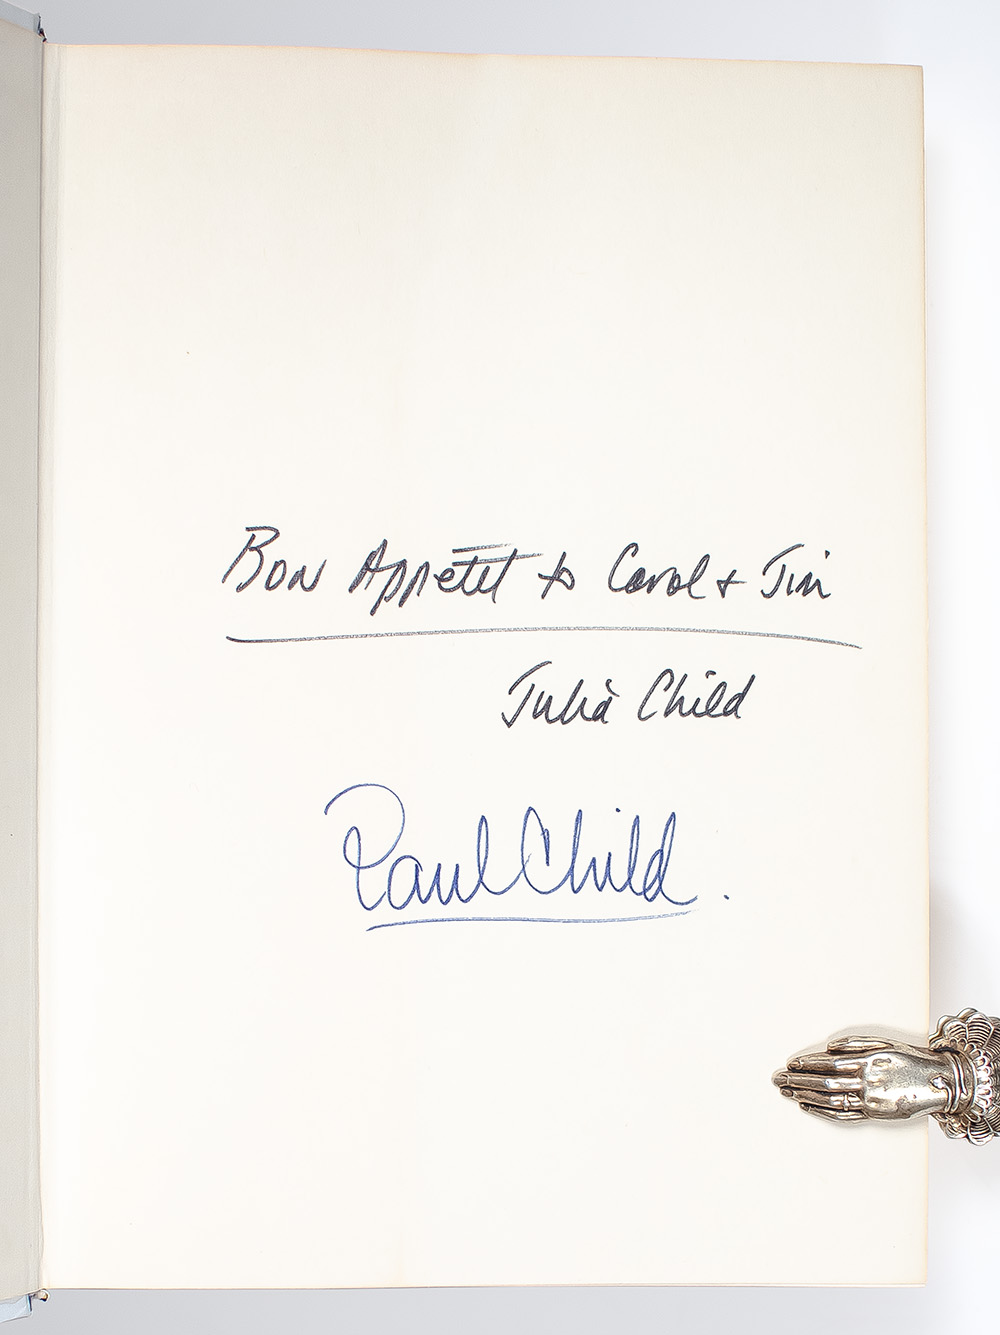 Bon Appétit to Carol + Jim
Julia Child
Paul Child.